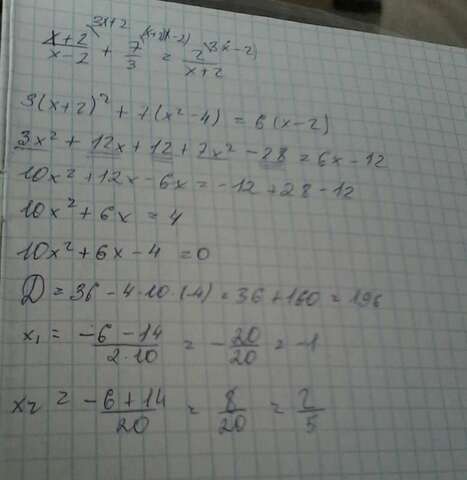 x+2/x-2 \3x+2 + 7/3 \(x+2)(x-2) = 2/x+2 \3(x-2)
3(x+2)² + 7(x²-4) = 6(x-2)
3x² + 12x + 12 + 7x² - 28 = 6x - 12
10x² + 12x - 6x = -12 + 28 - 12
10x² + 6x = 4
10x² + 6x - 4 = 0
D = 36 - 4·10·(-4) = 36 + 160 = 196
x₁ = -6-14/2·10 = -20/20 = -1
x₂ = -6+14/20 = 8/20 = 2/5